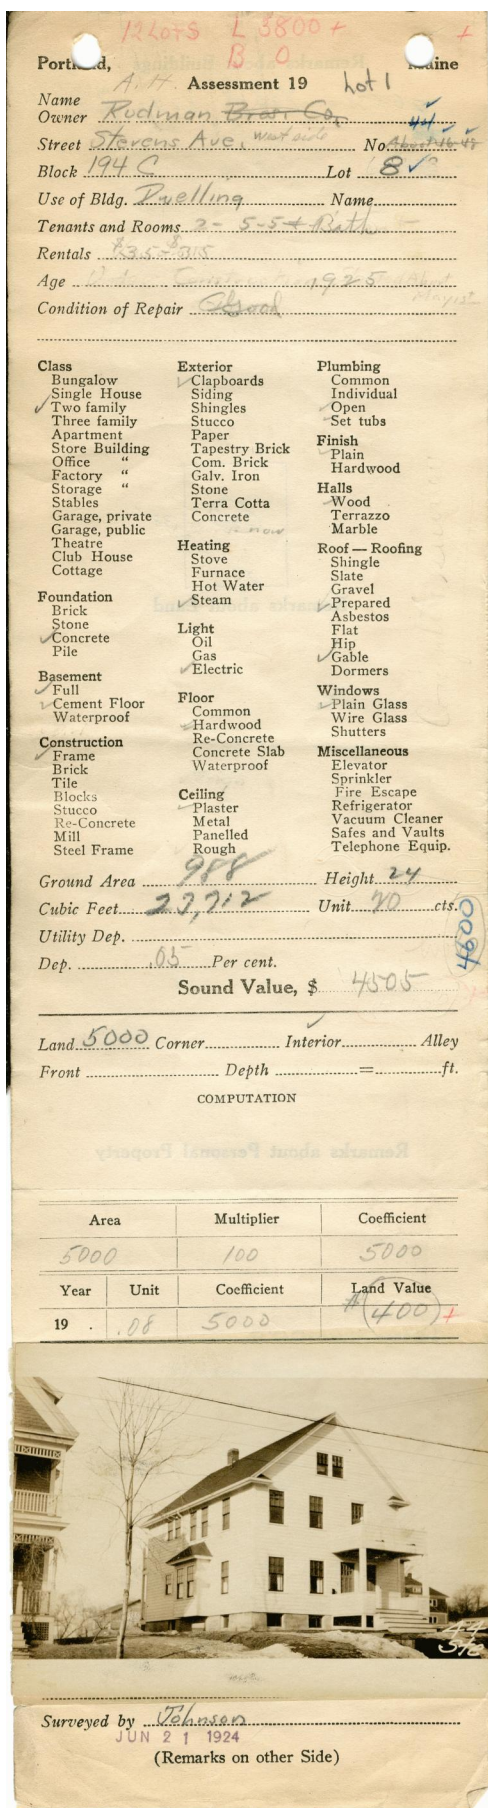 12 Lots L 3800 +
B 0 +
Portland, Maine
A. H. Assessment 19 Lot 1
Name
Owner Rudman Bros. Co.
44
Street Stevens Ave. west side No. About 46-48
Block 194 C Lot 8
Use of Bldg. Dwelling Name
Tenants and Rooms 2 - 5-5 + Bath
Rentals $35 - $35
Age Under Construction 1925
Condition of Repair Good
Class
Bungalow
Single House
Two family
Three family
Apartment
Store Building
Office "
Factory "
Storage "
Stables
Garage, private
Garage, public
Theatre
Club House
Cottage
Foundation
Brick
Stone
Concrete
Pile
Basement
Full
Cement Floor
Waterproof
Construction
Frame
Brick
Tile
Blocks
Stucco
Re-Concrete
Mill
Steel Frame
Exterior
Clapboards
Siding
Shingles
Stucco
Paper
Tapestry Brick
Com. Brick
Galv. Iron
Stone
Terra Cotta
Concrete
Heating
Stove
Furnace
Hot Water
Steam
Light
Oil
Gas
Electric
Floor
Common
Hardwood
Re-Concrete
Concrete Slab
Waterproof
Ceiling
Plaster
Metal
Panelled
Rough
Plumbing
Common
Individual
Open
Set tubs
Finish
Plain
Hardwood
Halls
Wood
Terrazzo
Marble
Roof — Roofing
Shingle
Slate
Gravel
Prepared
Asbestos
Flat
Hip
Gable
Dormers
Windows
Plain Glass
Wire Glass
Shutters
Miscellaneous
Elevator
Sprinkler
Fire Escape
Refrigerator
Vacuum Cleaner
Safes and Vaults
Telephone Equip.
Ground Area 988 Height 24
Cubic Feet 23,712 Unit 20 cts.
Utility Dep.
4600
Dep. .05 Per cent.
Sound Value, $ 4505
Land 5000 Corner Interior Alley
Front Depth = ft.
COMPUTATION
Remarks about Personal Property
Area Multiplier Coefficient
5000 100 5000
Year Unit Coefficient Land Value
19 . .08 5000 $ 400 +
44
Ste
Surveyed by Johnson
JUN 21 1924
(Remarks on other Side)